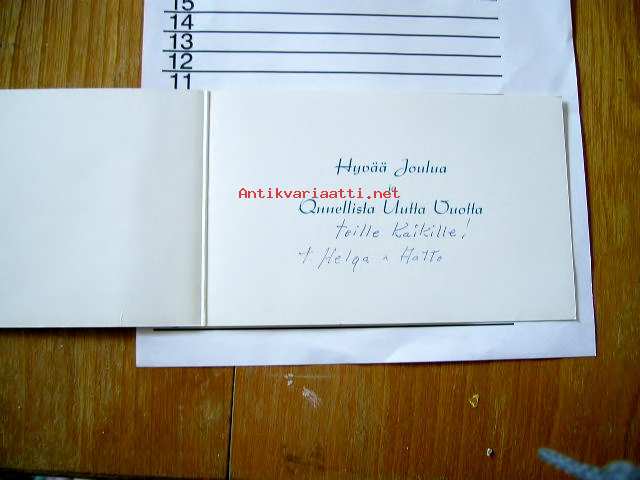 15
14
13
12
11
Hyvää Joulua
ja
Antikvariaatti.net
Onnellista Uutta Vuotta
teille kaikille!